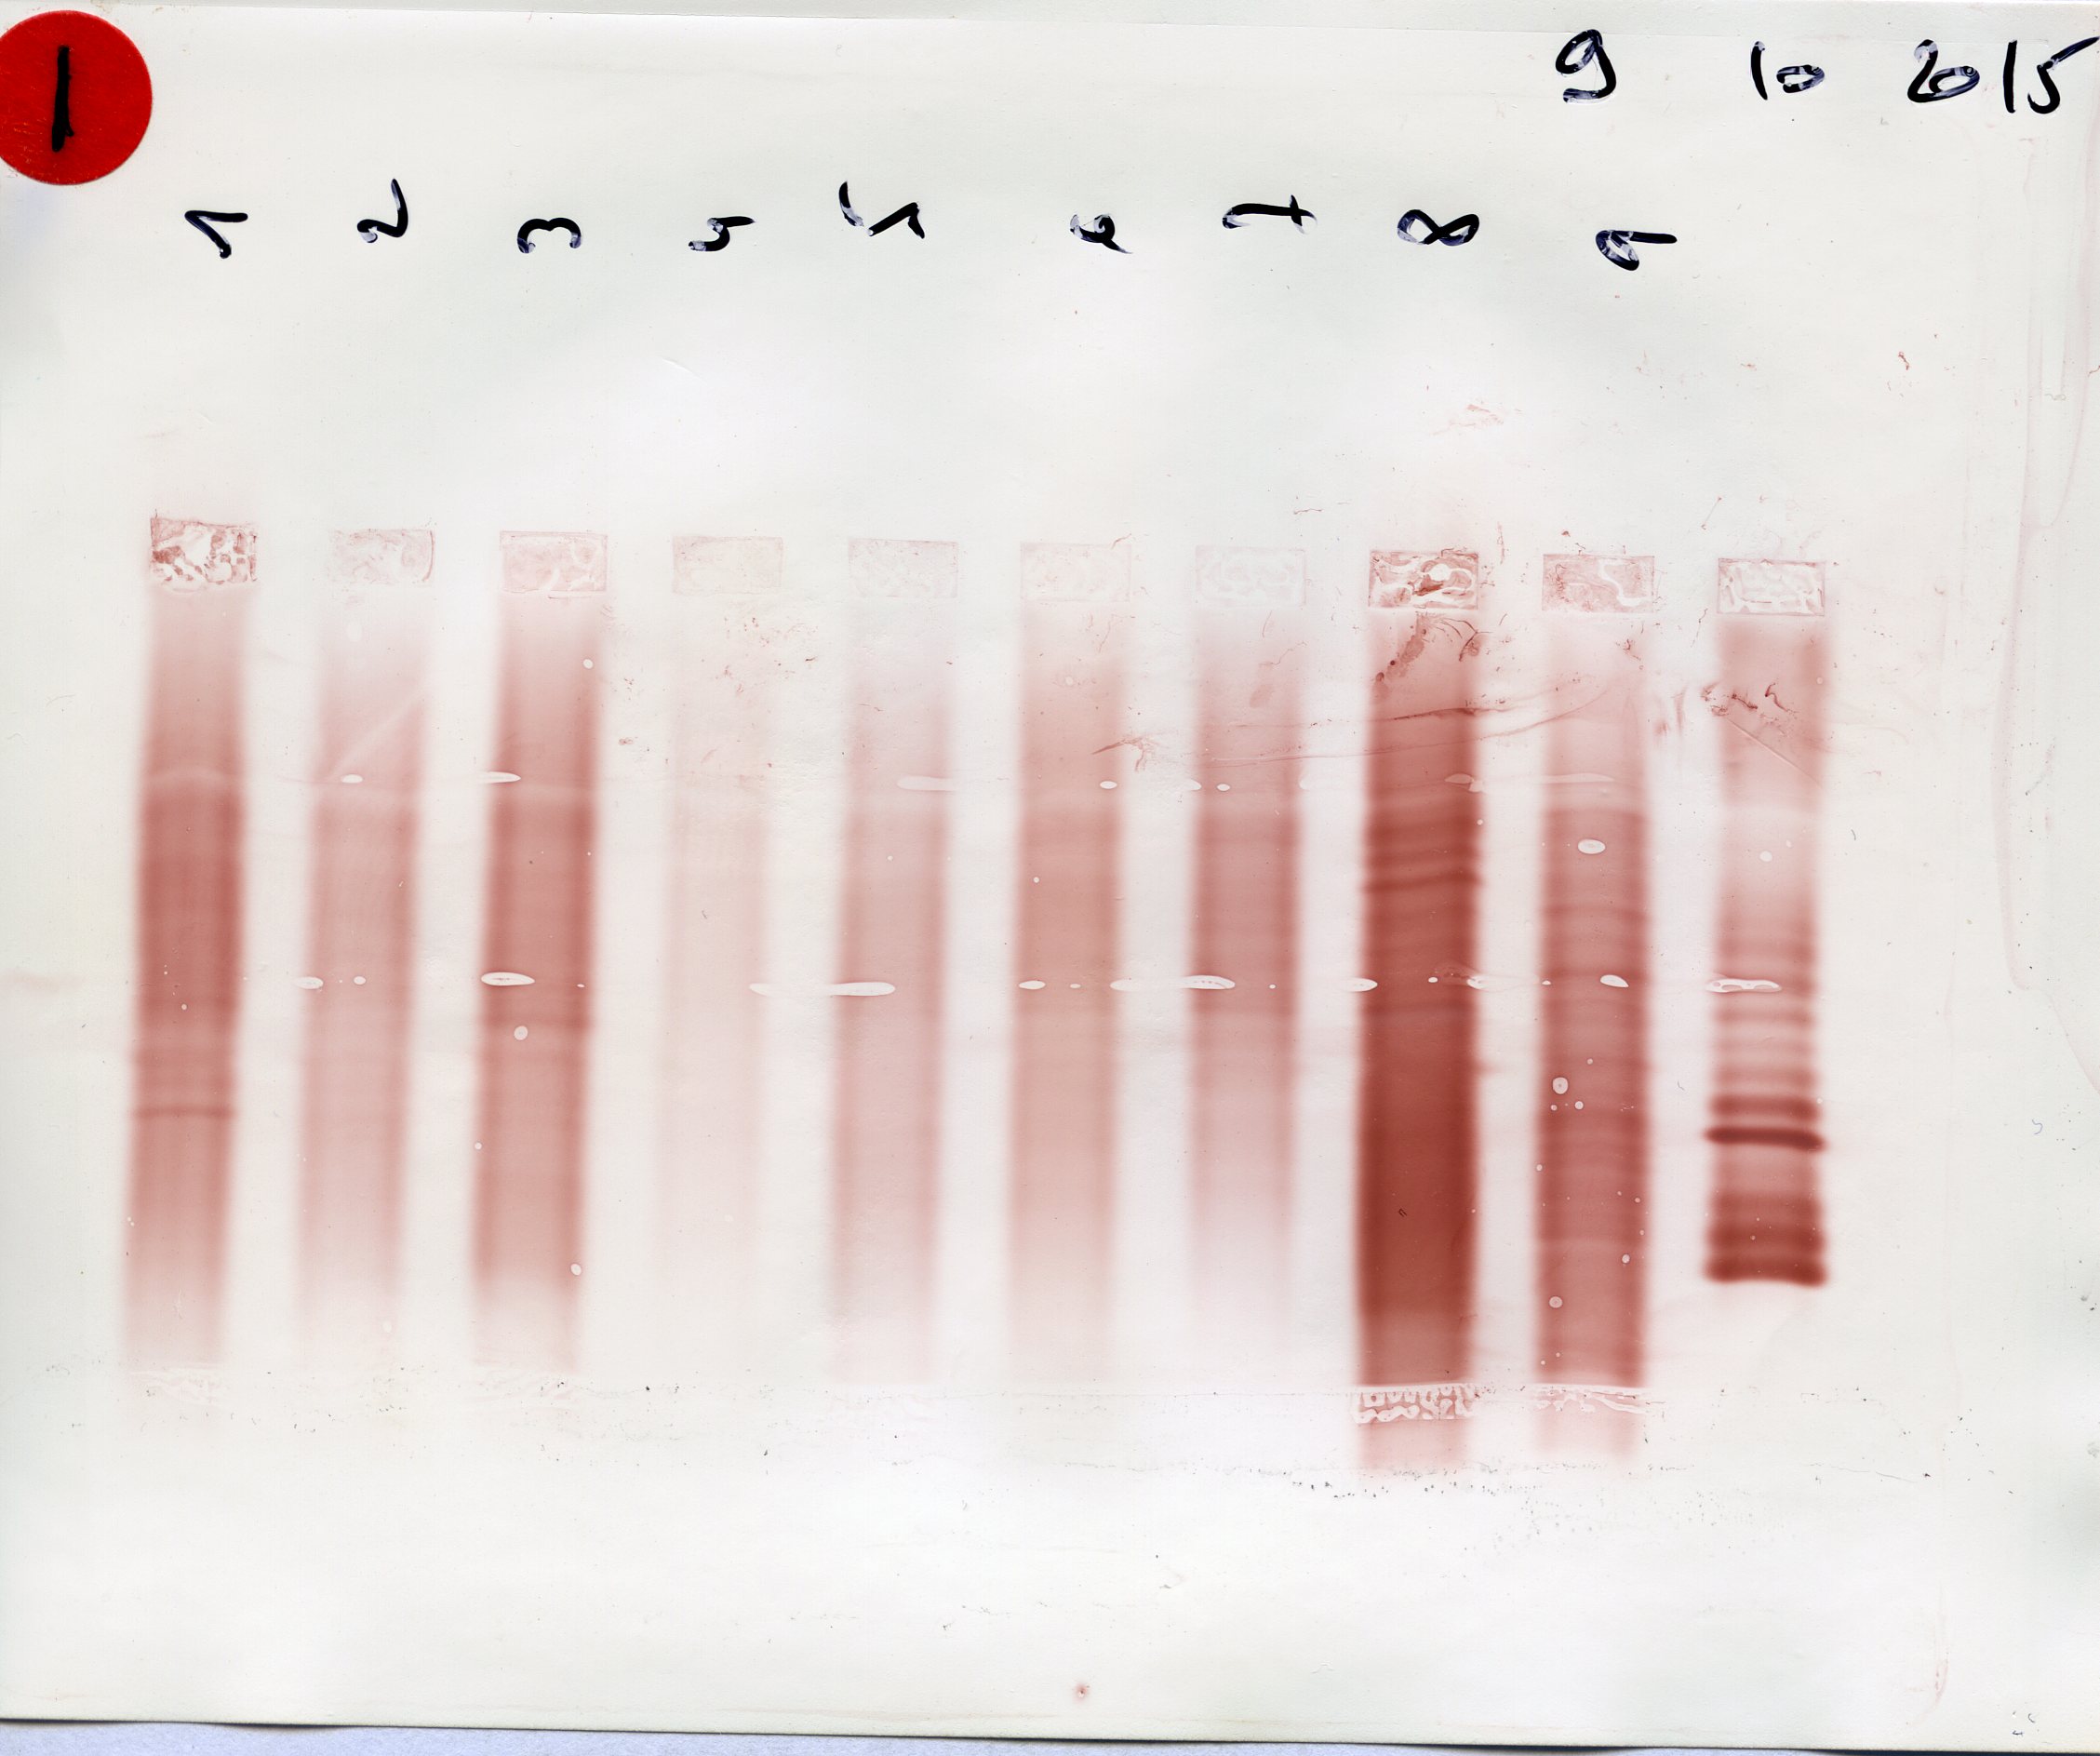 1
9 10 2015
1 2 3 4 5 6 7 8 9